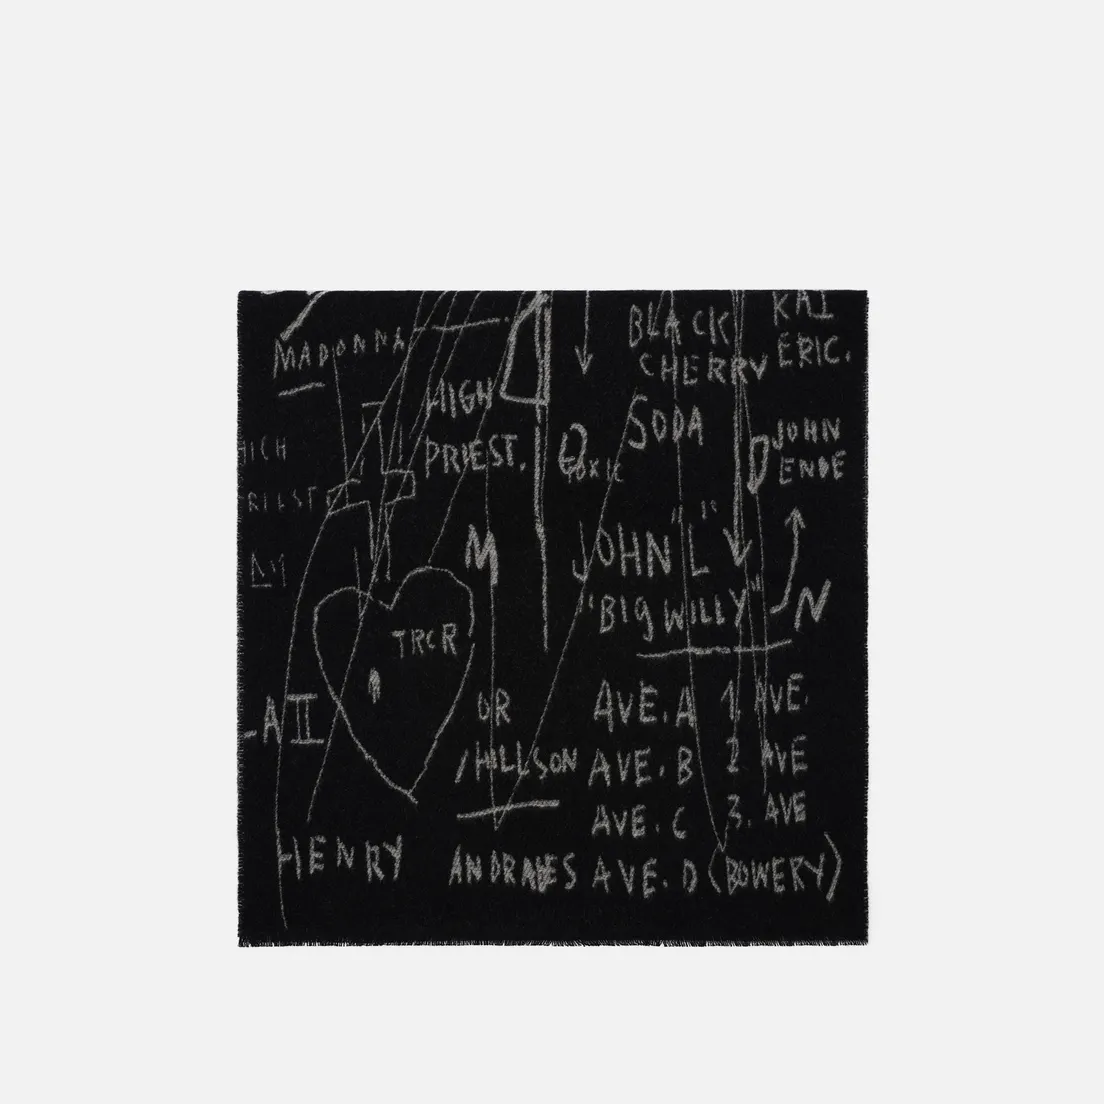 MADONNA
HIGH
PRIEST.
TOXIC
BLACK
CHERRY
SODA
KAI
ERIC.
JOHN
ENDE
M
JOHN "L"
"BIG WILLY"
N
TRCR
A II
OR
HILLSON
AVE. A 1. AVE.
AVE. B 2 AVE
AVE. C 3. AVE
HENRY
AVE. D (BOWERY)